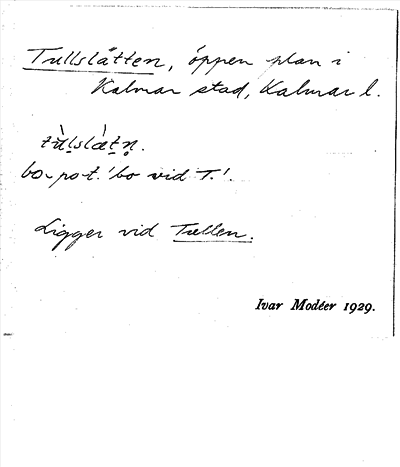 Tullslätten, öppen plan i
Kalmar stad, Kalmar l.
tùlslæ̀tn̥.
bo po t. 'bo vid T.'.
Ligger vid Tullen.
Ivar Modéer 1929.